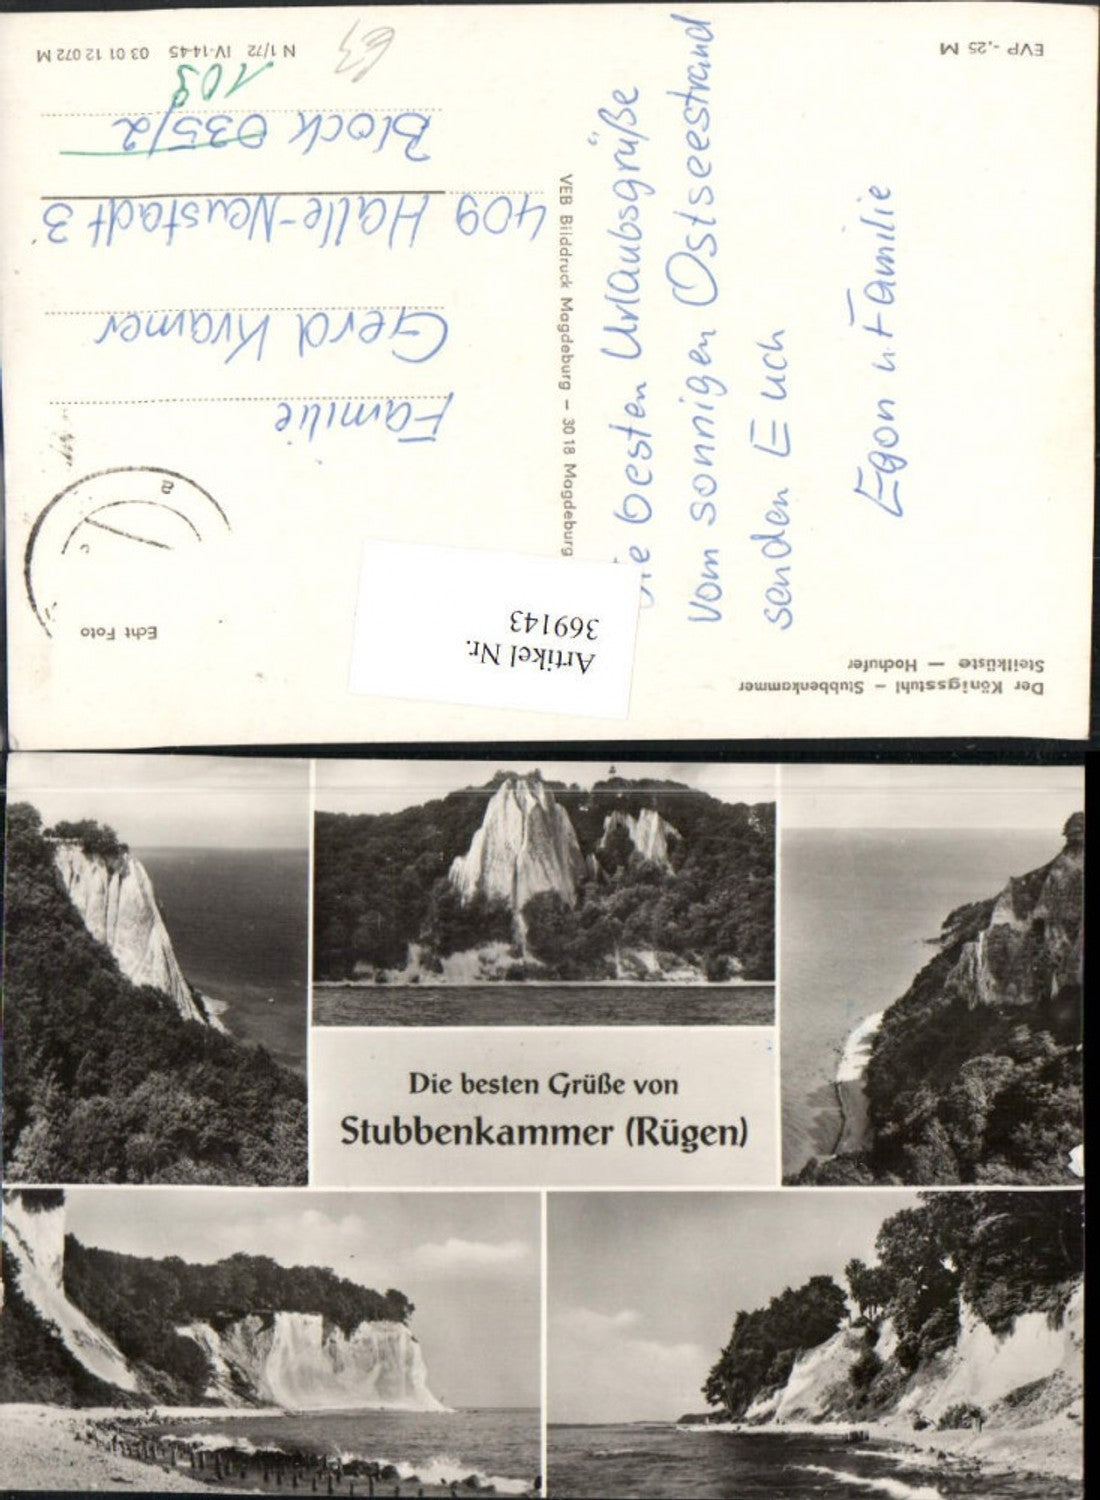 Der Königsstuhl – Stubbenkammer
Steilküste — Hochufer
Die besten Urlaubsgrüße
vom sonnigen Ostseestrand
senden Euch
Egon u. Familie
EVP -,25 M
VEB Bilddruck Magdeburg – 30 18 Magdeburg
Echt Foto
Artikel Nr.
369143
Familie
Gerd Kramer
409 Halle-Neustadt 3
Block 035/2
108
N 1/72 IV-14-45 03 01 12 072 M
Die besten Grüße von
Stubbenkammer (Rügen)